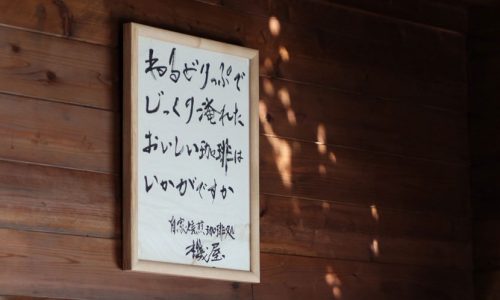 ねるどりっぷで
じっくり淹れた
おいしい珈琲は
いかがですか
自家焙煎珈琲処
機屋